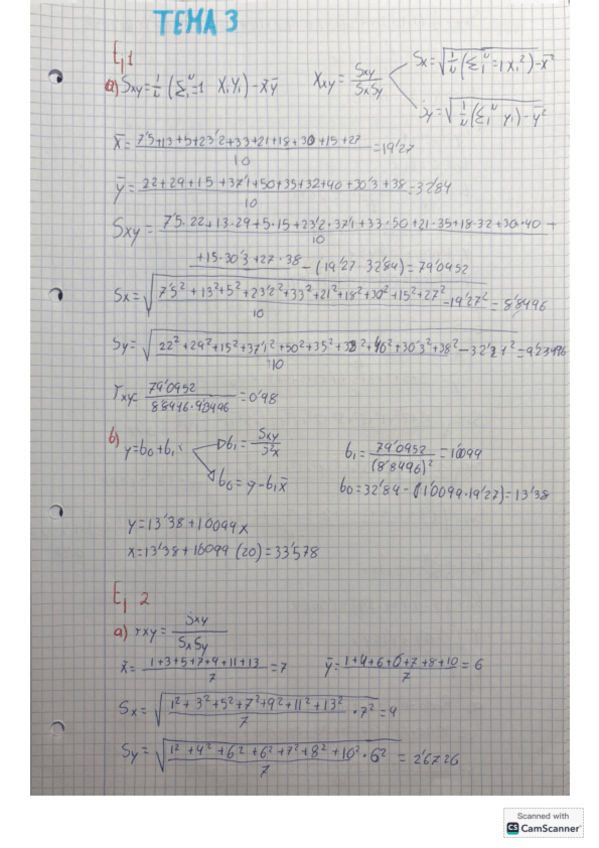 TEMA 3
Ej 1
a) Sxy = 1/N (Σᵢᴺ=1 Xᵢ Yᵢ) - x̄ȳ   Xxy = Sxy/SxSy   Sx = √(1/N (Σᵢᴺ=1 Xᵢ²) - x̄)
Sy = √(1/N (Σᵢᴺ yᵢ) - ȳ²)
x̄ = (7'5+13+5+23'2+33+21+18+30+15+27)/10 = 19'27
ȳ = (22+29+15+37'1+50+35+32+40+30'3+38)/10 = 32'84
Sxy = (7'5·22+13·29+5·15+23'2·37'1+33·50+21·35+18·32+30·40+
+15·30'3+27·38)/10 - (19'27·32'84) = 79'0952
Sx = √((7'5²+13²+5²+23'2²+33²+21²+18²+30²+15²+27²)/10 - 19'27²) = 8'8496
Sy = √((22²+29²+15²+37'1²+50²+35²+32²+40²+30'3²+38²)/10 - ) =
rxy = 79'0952/ = 0'98
b) y = b0+b1 b1 = Sxy/S²x   b1 = 79'0952/(8'8496)² = 1'0099
b0 = y - b1x̄   b0 = 32'84 - (1'0099·19'27) = 13'38
y = 13'38+1'0099x
x = 13'38+1'0099 (20) = 33'578
Ej 2
a) rxy = Sxy/SxSy
x̄ = (1+3+5+7+9+11+13)/7 = 7   ȳ = (1+4+6+6+7+8+10)/7 = 6
Sx = √((1²+3²+5²+7²+9²+11²+13²)/7 · 7²) = 4
Sy = √((1²+4²+6²+6²+7²+8²+10²·6²)/7) = 2'6726
Scanned with
CS CamScanner